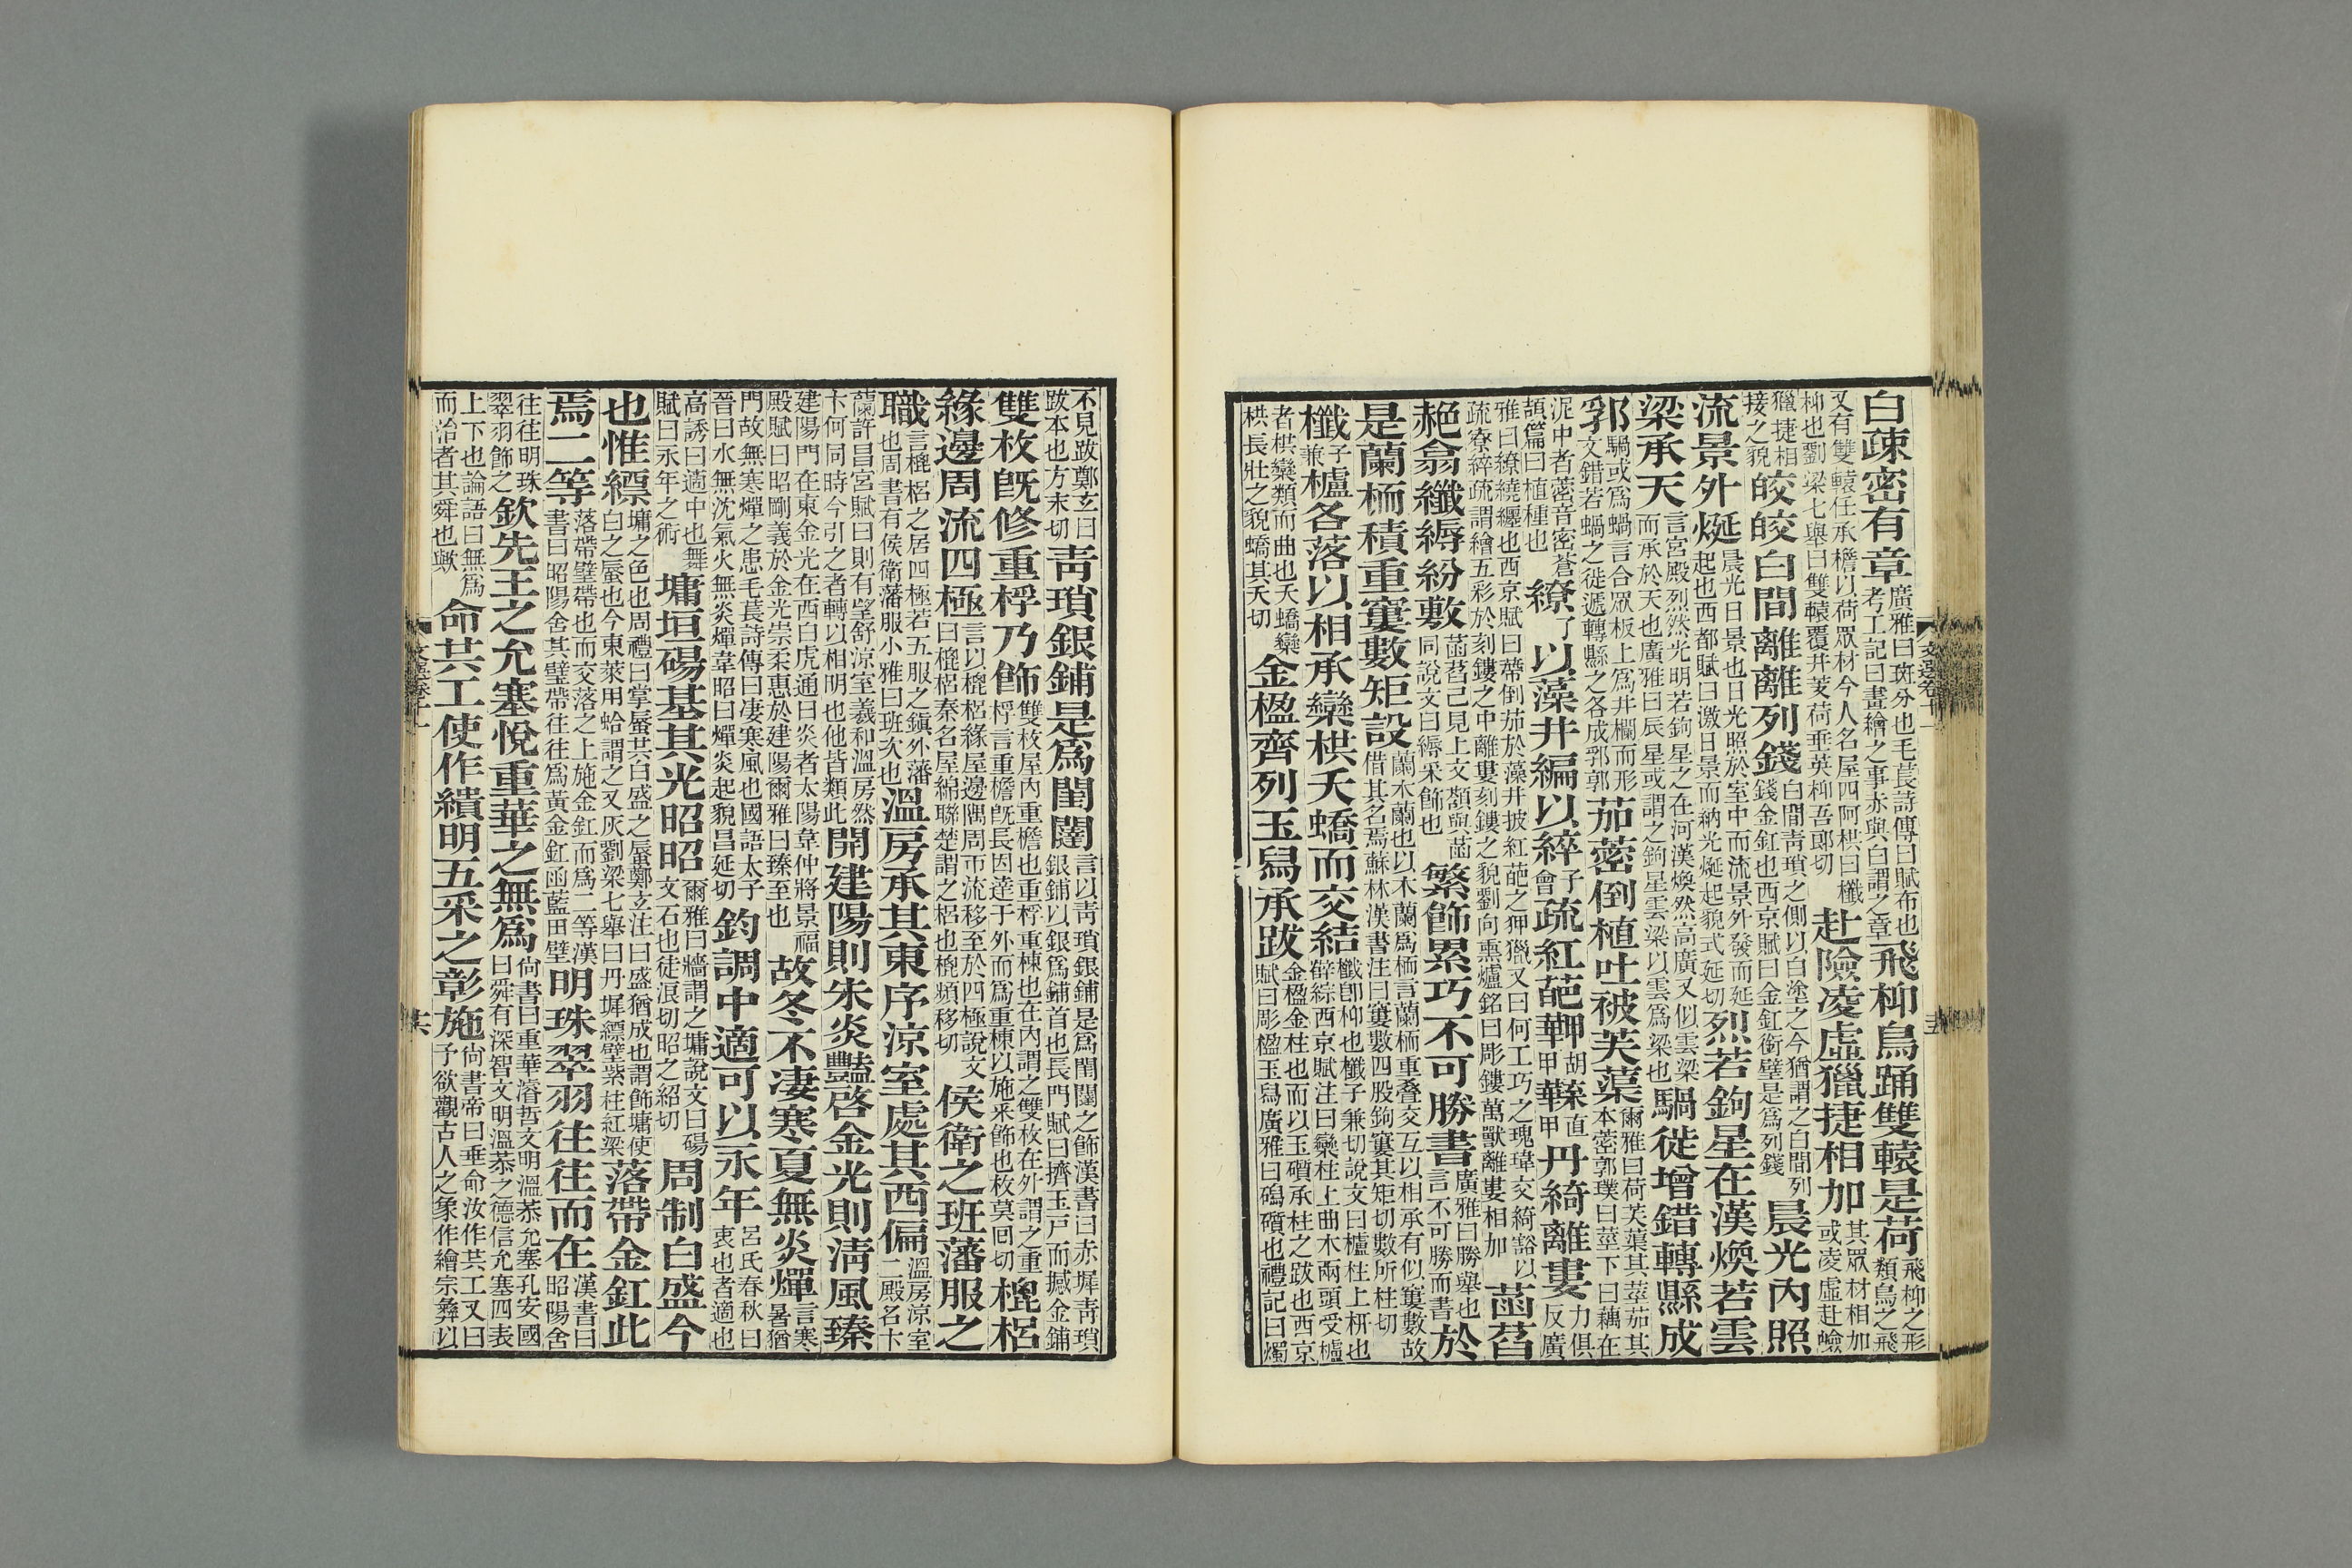 白疎密有章廣雅曰斑分也毛萇詩傳曰賦布也考工記曰畫繪之事赤與白謂之章飛枊鳥踊雙轅是荷飛枊之形類鳥之飛
又有雙轅任承檐以荷眾材今人名屋四阿栱曰櫼枊也劉梁七舉曰雙轅覆井芰荷垂英枊吾郎切赴險凌虛獵捷相加其眾材相加或凌虛赴嶮
獵捷相接之貌皎皎白間離離列錢白間青瑣之側以白塗之今猶謂之白間列錢金釭也西京賦曰金釭銜璧是為列錢晨光內照
流景外烻晨光日景也日光照於室中而流景外發而延起也西都賦曰激日景而納光烻起貌式延切烈若鉤星在漢煥若雲
梁承天言宮殿烈烈然光明若鉤星之在河漢煥然高廣又似雲梁而承於天也廣雅曰辰星或謂之鉤星雲梁以雲為梁也騧徙增錯轉縣成
郛騧或為蝸言合眾板上為井欄而形文錯若蝸之徙遞轉縣之各成郛郭茄蔤倒植吐被芙蕖爾雅曰荷芙蕖其莖茄其本蔤郭璞曰莖下曰藕在
泥中者蔤音密蒼頡篇曰植種也繚了以藻井編以綷子會疏紅葩䩔胡甲䕣直甲丹綺離婁力俱反廣
雅曰繚繞纏也西京賦曰蔕倒茄於藻井披紅葩之狎獵又曰何工巧之瑰瑋交綺豁以疏寮綷疏謂繪五彩於刻鏤之中離婁刻鏤之貌劉向熏爐銘曰彫鏤萬獸離婁相加菡萏
赩翕纖縟紛敷菡萏已見上文䫴與菡同說文曰縟采飾也繁飾累巧不可勝書廣雅曰勝舉也言不可勝而書於
是蘭栭積重窶數矩設蘭木蘭也以木蘭為栭言蘭栭重疊交互以相承有似窶數故借其名焉蘇林漢書注曰窶數四股鉤窶其矩切數所柱切
櫼子兼櫨各落以相承欒栱夭蟜而交結櫼卽枊也櫼子兼切說文曰櫨柱上枅也薛綜西京賦注曰欒柱上曲木兩頭受櫨
者栱欒類而曲也夭蟜欒栱長壯之貌蟜其夭切金楹齊列玉舄承跋金楹金柱也而以玉礩承柱之跋也西京賦曰彫楹玉舄廣雅曰磶礩也禮記曰燭
文選卷十一
五
不見跋鄭玄曰跋本也方末切青瑣銀鋪是為閨闥言以青瑣銀鋪是為閨闥之飾漢書曰赤墀青瑣銀鋪以銀為鋪首也長門賦曰擠玉戶而撼金鋪
雙枚旣修重桴乃飾雙枚屋內重檐也重桴重棟也在內謂之雙枚在外謂之重桴言重檐旣長因達于外而為重棟以施采飾也枚莫回切㮰梠
緣邊周流四極言以㮰梠緣屋邊隅周帀流移至於四極說文曰㮰梠秦名屋緜聯楚謂之梠也㮰頻移切侯衛之班藩服之
職言㮰梠之居四極若五服之鎮外藩也周書有侯衛藩服小雅曰班次也溫房承其東序涼室處其西偏溫房涼室二殿名卞
蘭許昌宮賦曰則有望舒涼室羲和溫房然卞何同時今引之者轉以相明也他皆類此開建陽則朱炎豔啓金光則清風臻
建陽門在東金光在西白虎通曰炎者太陽韋仲將景福殿賦曰昭剛義於金光崇柔惠於建陽爾雅曰臻至也故冬不淒寒夏無炎燀言寒暑猶
門故無寒燀之患毛萇詩傳曰淒寒風也國語太子晉曰水無沈氣火無炎燀韋昭曰燀炎起貌昌延切鈞調中適可以永年呂氏春秋曰衷也者適也
高誘曰適中也舞賦曰永年之術墉垣碭基其光昭昭爾雅曰牆謂之墉說文曰碭文石也徒浪切昭之紹切周制白盛今
也惟縹墉之色也周禮曰掌蜃共白盛之蜃鄭玄注曰盛猶成也謂飾墉使白之蜃也今東萊用蛤謂之叉灰劉梁七舉曰丹墀縹壁紫柱紅梁落帶金釭此
焉二等落帶壁帶也而交落之上施金釭而為二等漢書曰昭陽舍其壁帶往往為黃金釭函藍田璧明珠翠羽往往而在漢書曰昭陽舍
往往明珠翠羽飾之欽先王之允塞悅重華之無為尚書曰重華濬哲文明溫恭允塞孔安國曰舜有深智文明溫恭之德信允塞四表
上下也論語曰無為而治者其舜也歟命共工使作繢明五采之彰施尚書帝曰垂命汝作共工又曰予欲觀古人之象作繪宗彝以
文選卷十一
六